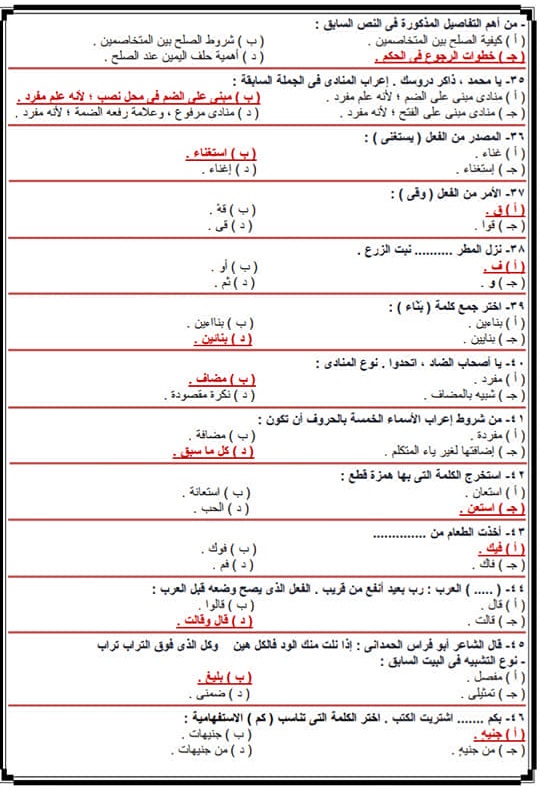 - من أهم التفاصيل المذكورة فى النص السابق :
( أ ) كيفية الصلح بين المتخاصمين . ( ب ) شروط الصلح بين المتخاصمين .
( جـ ) خطوات الرجوع فى الحكم . ( د ) أهمية حلف اليمين عند الصلح .
٣٥- يا محمد ، ذاكر دروسك . إعراب المنادى فى الجملة السابقة :
( أ ) منادى مبنى على الضم ؛ لأنه علم مفرد . ( ب ) مبنى على الضم فى محل نصب ؛ لأنه علم مفرد .
( جـ ) منادى مبنى على الفتح ؛ لأنه مفرد . ( د ) منادى مرفوع ، وعلامة رفعه الضمة ؛ لأنه مفرد .
٣٦- المصدر من الفعل ( يستغنى ) :
( أ ) غناء . ( ب ) استغناء .
( جـ ) إستغناء . ( د ) إغناء .
٣٧- الأمر من الفعل ( وقى ) :
( أ ) ق . ( ب ) قهْ .
( جـ ) قوا . ( د ) قى .
٣٨- نزل المطر .......... نبت الزرع .
( أ ) ف . ( ب ) أو .
( جـ ) و . ( د ) ثم .
٣٩- اختر جمع كلمة ( بنَّاء ) :
( أ ) بناءين . ( ب ) بنااءين .
( جـ ) بنايين . ( د ) بنائين .
٤٠- يا أصحاب الضاد ، اتحدوا . نوع المنادى :
( أ ) مفرد . ( ب ) مضاف .
( جـ ) شبيه بالمضاف . ( د ) نكرة مقصودة .
٤١- من شروط إعراب الأسماء الخمسة بالحروف أن تكون :
( أ ) مفردة . ( ب ) مضافة .
( جـ ) إضافتها لغير ياء المتكلم . ( د ) كل ما سبق .
٤٢- استخرج الكلمة التى بها همزة قطع :
( أ ) استعان . ( ب ) استعانة .
( جـ ) استعن . ( د ) الحب .
٤٣- أخذت الطعام من ..............
( أ ) فيك . ( ب ) فوك .
( جـ ) فاك . ( د ) فم .
٤٤- ( ..... ) العرب : رب بعيد أنفع من قريب . الفعل الذى يصح وضعه قبل العرب :
( أ ) قال . ( ب ) قالوا .
( جـ ) قالت . ( د ) قال وقالت .
٤٥- قال الشاعر أبو فراس الحمدانى : إذا نلت منك الود فالكل هين وكل الذى فوق التراب تراب
- نوع التشبيه فى البيت السابق :
( أ ) مفصل . ( ب ) بليغ .
( جـ ) تمثيلى . ( د ) ضمنى .
٤٦- بكم ....... اشتريت الكتب . اختر الكلمة التى تناسب ( كم ) الاستفهامية :
( أ ) جنيهٍ . ( ب ) جنيهات .
( جـ ) من جنيهٍ . ( د ) من جنيهات .